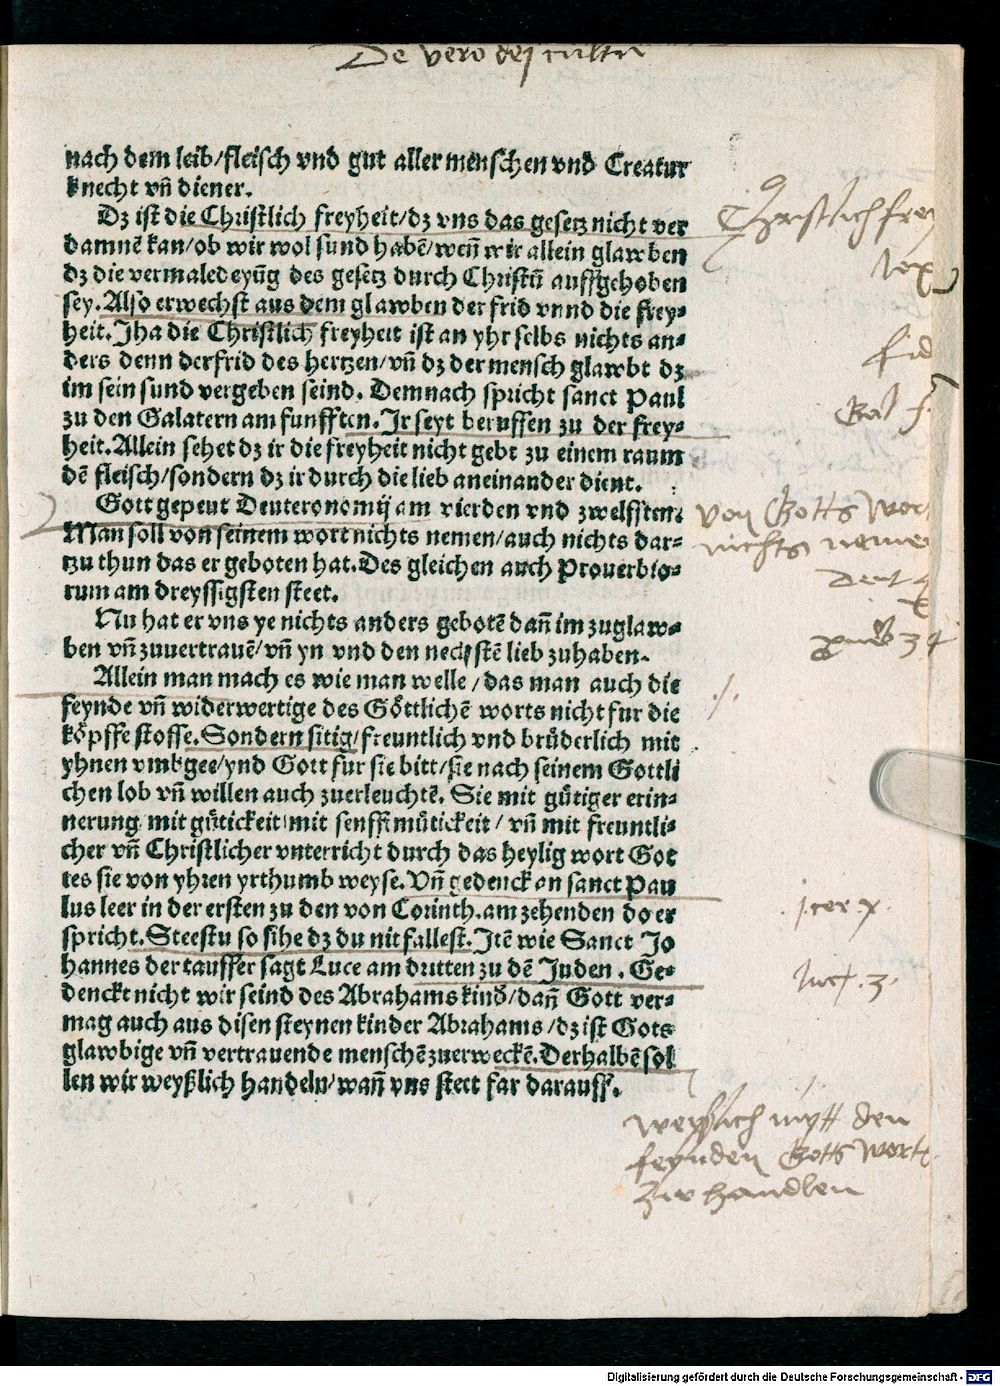 De vero dej cultu
nach dem leib/fleisch vnd gut aller menschen vnd Creatur
knecht vñ diener.
Dz ist die Christlich freyheit/dz vns das gesetz nicht ver
damnē kan/ob wir wol sund habē/weñ wir allein glawben
dz die vermaledeyūg des gesetz durch Christū auffgehoben
sey. Also erwechst aus dem glawben der frid vnnd die frey-
heit. Jha die Christlich freyheit ist an yhr selbs nichts an-
ders denn der frid des hertzen/vñ dz der mensch glawbt dz
im sein sund vergeben seind. Demnach spricht sanct Paul
zu den Galatern am funfften. Jr seyt beruffen zu der frey-
heit. Allein sehet dz ir die freyheit nicht gebt zu einem raum
dē fleisch/sondern dz ir durch die lieb aneinander dient.
Gott gepeut Deuteronomij am vierden vnd zwelfften.
Man soll von seinem wort nichts nemen/auch nichts dar-
tzu thun das er geboten hat. Des gleichen auch Prouerbio-
rum am dreyssigsten steet.
Nu hat er vns ye nichts anders gebotē dañ im zuglaw-
ben vñ zuuertrauē/vñ yn vnd den nechstē lieb zuhaben.
Allein man mach es wie man welle/das man auch die
feynde vñ widerwertige des Göttlichē worts nicht fur die
köpffe stosse. Sondern sitig/freuntlich vnd brüderlich mit
yhnen vmbgee/vnd Gott fur sie bitt/sie nach seinem Gottli
chen lob vñ willen auch zuerleuchtē. Sie mit gütiger erin-
nerung mit gütickeit mit senfftmütickeit/vñ mit freuntli-
cher vñ Christlicher vnterricht durch das heylig wort Got
tes sie von yhren yrthumb weyse. Vñ gedenck an sanct Pau
lus leer in der ersten zu den von Corinth. am zehenden do er
spricht. Steestu so sihe dz du nit fallest. Jtē wie Sanct Jo
hannes der tauffer sagt Luce am dritten zu dē Juden. Ge-
denckt nicht wir seind des Abrahams kind/dañ Gott ver-
mag auch aus disen steynen kinder Abrahams/dz ist Gots
glawbige vñ vertrauende menschē zuerweckē. Derhalbē sol
len wir weyßlich handeln/wañ vns steet far darauff.
Christlich frey
lex
fid
Gal 5.
Von Gotts Wor
nichts neme
Deut 4
.j.cor.x.
Luce.3.
Weyßlich mytt den
feynden Gotts Wort
zw handlen
Digitalisierung gefördert durch die Deutsche Forschungsgemeinschaft - DFG